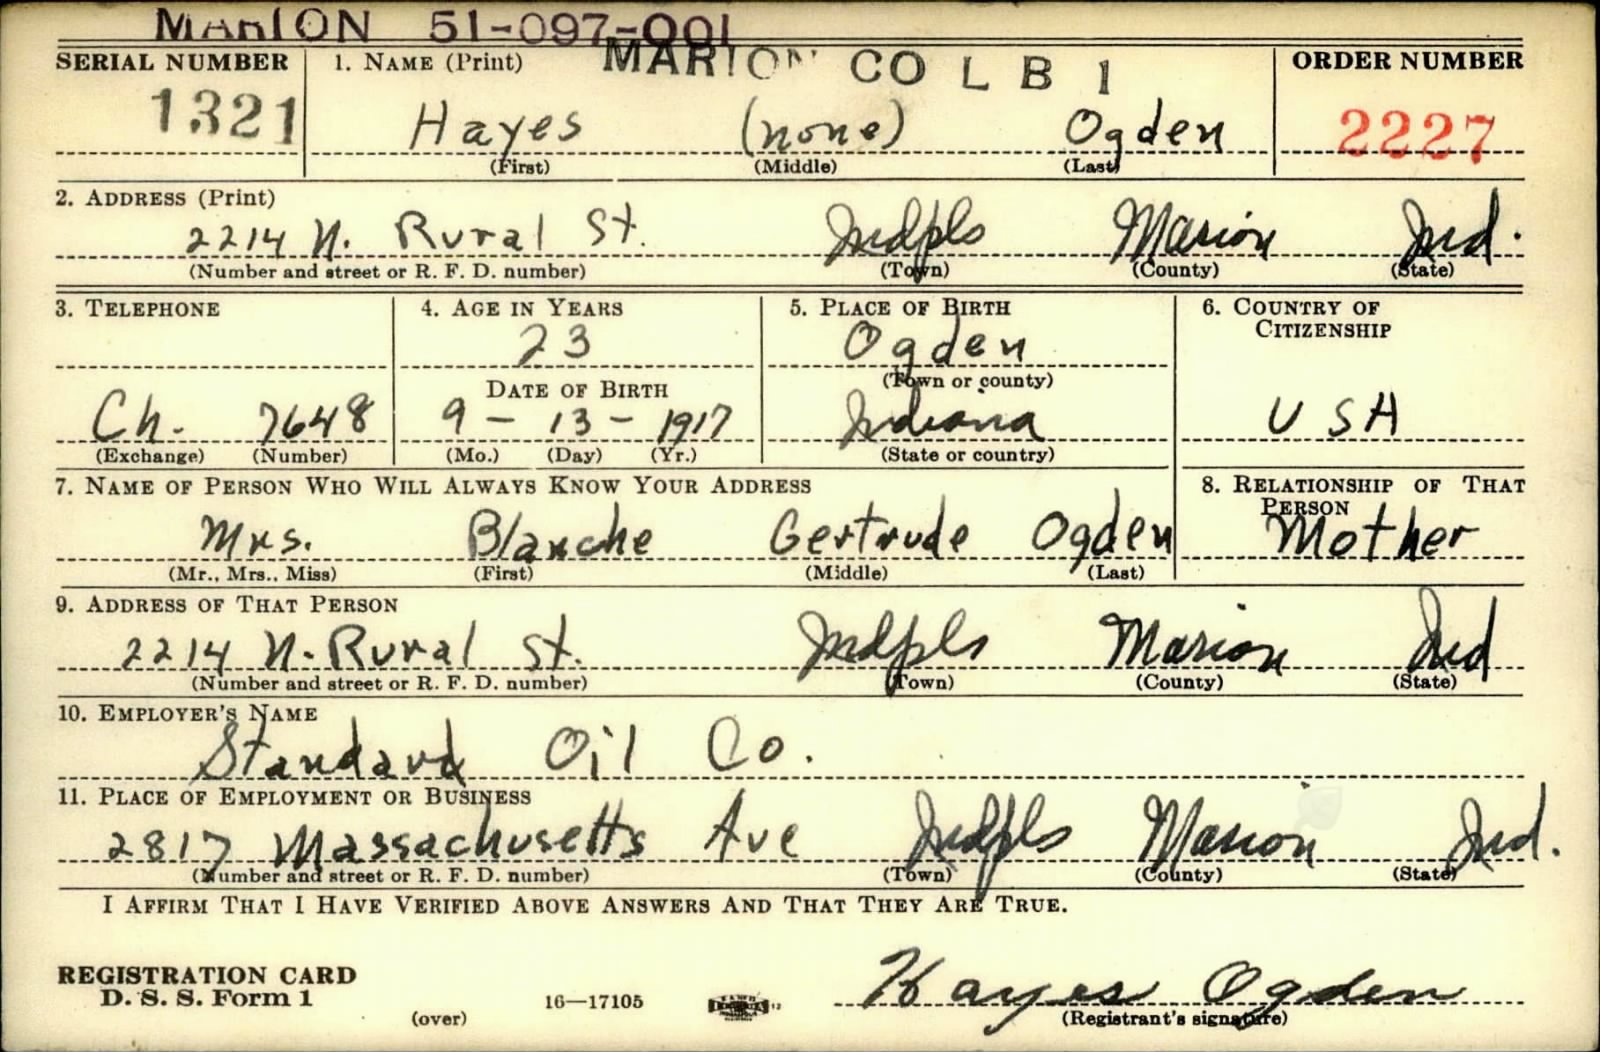 MARION 51-097-001
MARION CO L B 1
SERIAL NUMBER 1. NAME (Print) ORDER NUMBER
1321 Hayes (none) Ogden 2227
(First) (Middle) (Last)
2. ADDRESS (Print)
2214 N. Rural St. Indpls Marion Ind.
(Number and street or R. F. D. number) (Town) (County) (State)
3. TELEPHONE 4. AGE IN YEARS 5. PLACE OF BIRTH 6. COUNTRY OF
CITIZENSHIP
23 Ogden
DATE OF BIRTH (Town or county)
Ch. 7648 9 - 13 - 1917 Indiana USA
(Exchange) (Number) (Mo.) (Day) (Yr.) (State or country)
7. NAME OF PERSON WHO WILL ALWAYS KNOW YOUR ADDRESS 8. RELATIONSHIP OF THAT
PERSON
Mrs. Blanche Gertrude Ogden Mother
(Mr., Mrs., Miss) (First) (Middle) (Last)
9. ADDRESS OF THAT PERSON
2214 N. Rural St. Indpls Marion Ind
(Number and street or R. F. D. number) (Town) (County) (State)
10. EMPLOYER'S NAME
Standard Oil Co.
11. PLACE OF EMPLOYMENT OR BUSINESS
2817 Massachusetts Ave Indpls Marion Ind.
(Number and street or R. F. D. number) (Town) (County) (State)
I AFFIRM THAT I HAVE VERIFIED ABOVE ANSWERS AND THAT THEY ARE TRUE.
REGISTRATION CARD
D. S. S. Form 1 16—17105 Hayes Ogden
(over) (Registrant's signature)